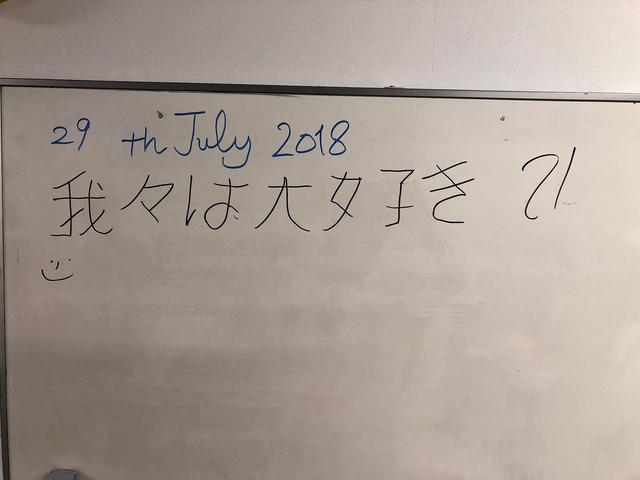 29 th July 2018
我々は大好き